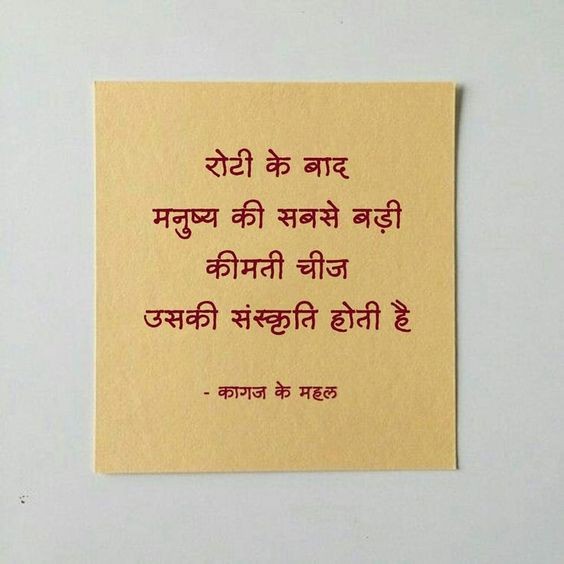 रोटी के बाद
मनुष्य की सबसे बड़ी
कीमती चीज
उसकी संस्कृति होती है
- कागज के महल